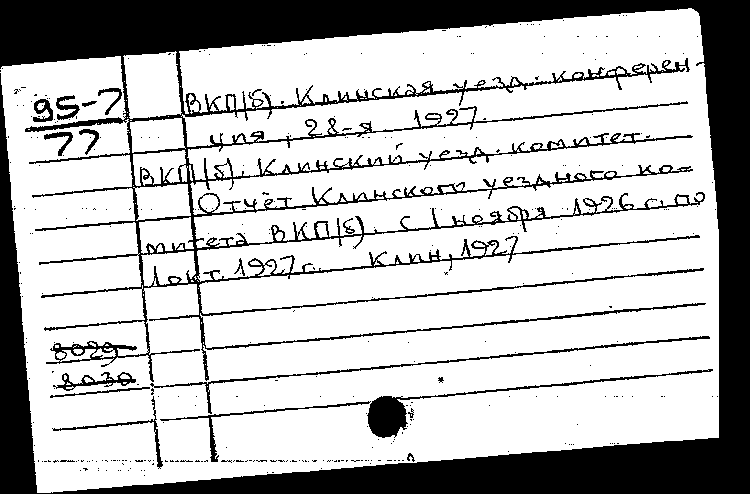 95-7
77
ВКП(б). Клинская уезд. конферен-
ция, 28-я. 1927.
ВКП(б). Клинский уезд. комитет.
Отчёт Клинского уездного ко-
митета ВКП(б). с 1 ноября 1926 г. по
1 окт. 1927 г. Клин, 1927
8029
8030